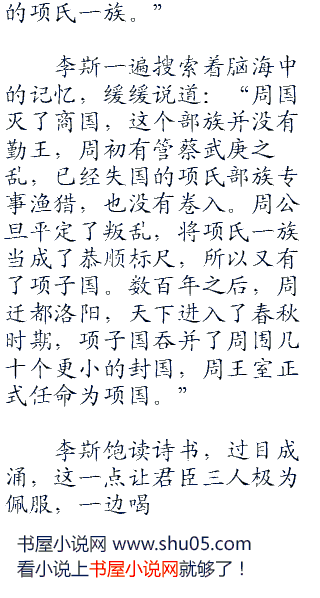 的项氏一族。”
李斯一遍搜索着脑海中
的记忆，缓缓说道：“周国
灭了商国，这个部族并没有
勤王，周初有管蔡武庚之
乱，已经失国的项氏部族专
事渔猎，也没有卷入。周公
旦平定了叛乱，将项氏一族
当成了恭顺标尺，所以又有
了项子国。数百年之后，周
迁都洛阳，天下进入了春秋
时期，项子国吞并了周围几
十个更小的封国，周王室正
式任命为项国。”
李斯饱读诗书，过目成
涌，这一点让君臣三人极为
佩服，一边喝
书屋小说网 www.shu05.com
看小说上书屋小说网就够了！